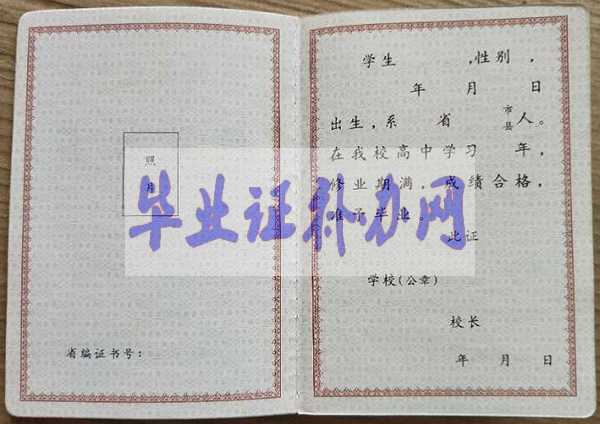 照
片
省编证书号：
学生　　　,性别　,
年　月　日
出生,系　省　市县人。
在我校高中学习　年,
修业期满,成绩合格,
准予毕业。
此证
学校(公章)
校长
年　月　日
毕业证补办网